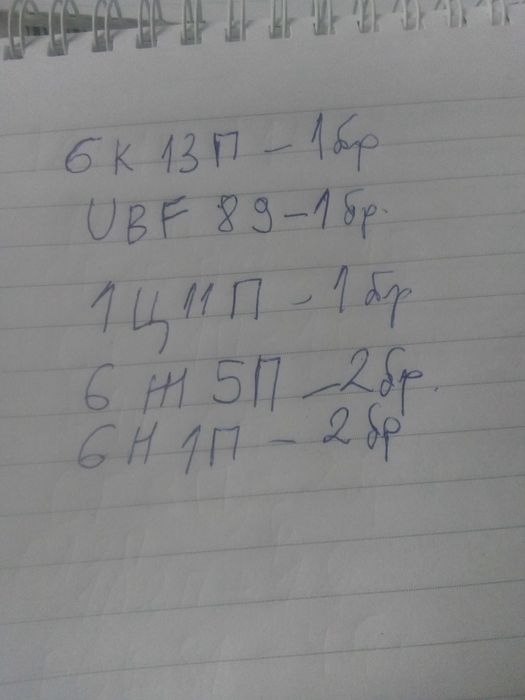 6К 13П - 1бр
UBF 89 - 1бр.
1Ц11П - 1бр
6Ж5П - 2бр.
6Н1П - 2бр